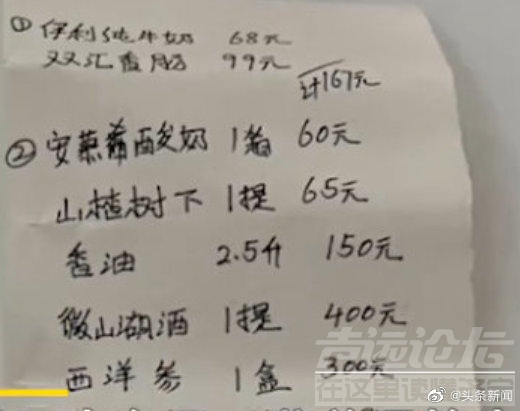 ① 伊利纯牛奶 68元
双汇香肠 99元
计167元
② 安慕希酸奶 1箱 60元
山楂树下 1提 65元
香油 2.5升 150元
微山湖酒 1提 400元
西洋参 1盒 300元
幸运论坛
在这里读懂幸运
@头条新闻